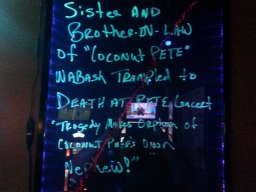 Sister AND
Brother-IN-LAW
of "Coconut Pete"
WABASH TRAMPLED to
DEATH AT PETE Concert
"Tragedy Makes Orphan of
Coconut Pete's Own
Nephew!"